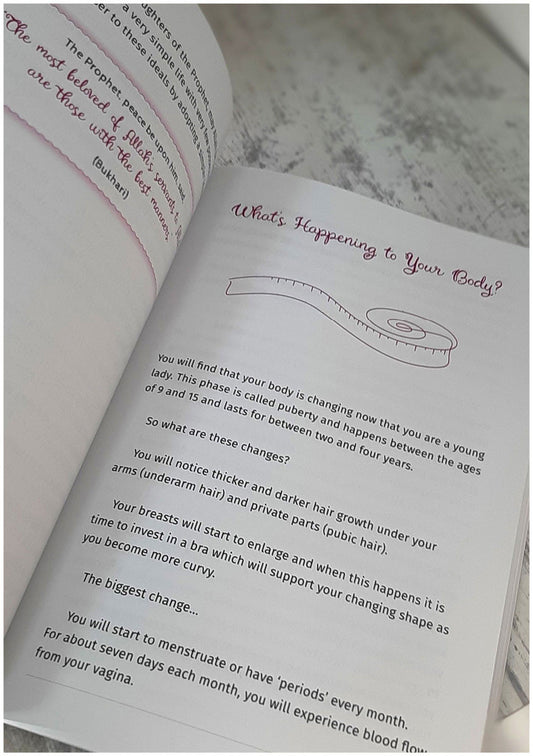 ughters of the Prophet, may
a very simple life with very few
er to these ideals by adopting a simple
The Prophet, peace be upon him, said,
"The most beloved of Allah's servants to
are those with the best manners"
(Bukhari)
What's Happening to Your Body?
You will find that your body is changing now that you are a young
lady. This phase is called puberty and happens between the ages
of 9 and 15 and lasts for between two and four years.
So what are these changes?
You will notice thicker and darker hair growth under your
arms (underarm hair) and private parts (pubic hair).
Your breasts will start to enlarge and when this happens it is
time to invest in a bra which will support your changing shape as
you become more curvy.
The biggest change...
You will start to menstruate or have 'periods' every month.
For about seven days each month, you will experience blood flow
from your vagina.